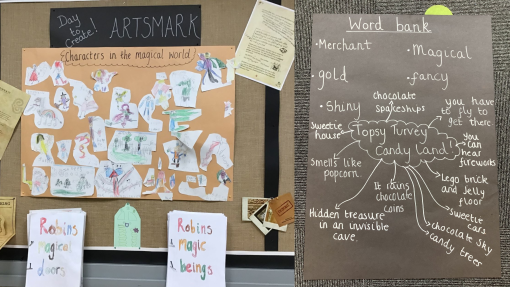 Day to Create!
ARTSMARK
Characters in the magical world
Robins
magical
doors
Robins
magic
beings
Word bank
• Merchant
• Magical
• gold
• fancy
• Shiny
chocolate spaceships
you have to fly to get there
Sweetie house
Topsy Turvey Candy Land
you can hear fireworks
Smells like popcorn
Lego brick and Jelly floor
It rains chocolate coins
Hidden treasure in an invisible cave
sweetie cars
chocolate sky
candy trees